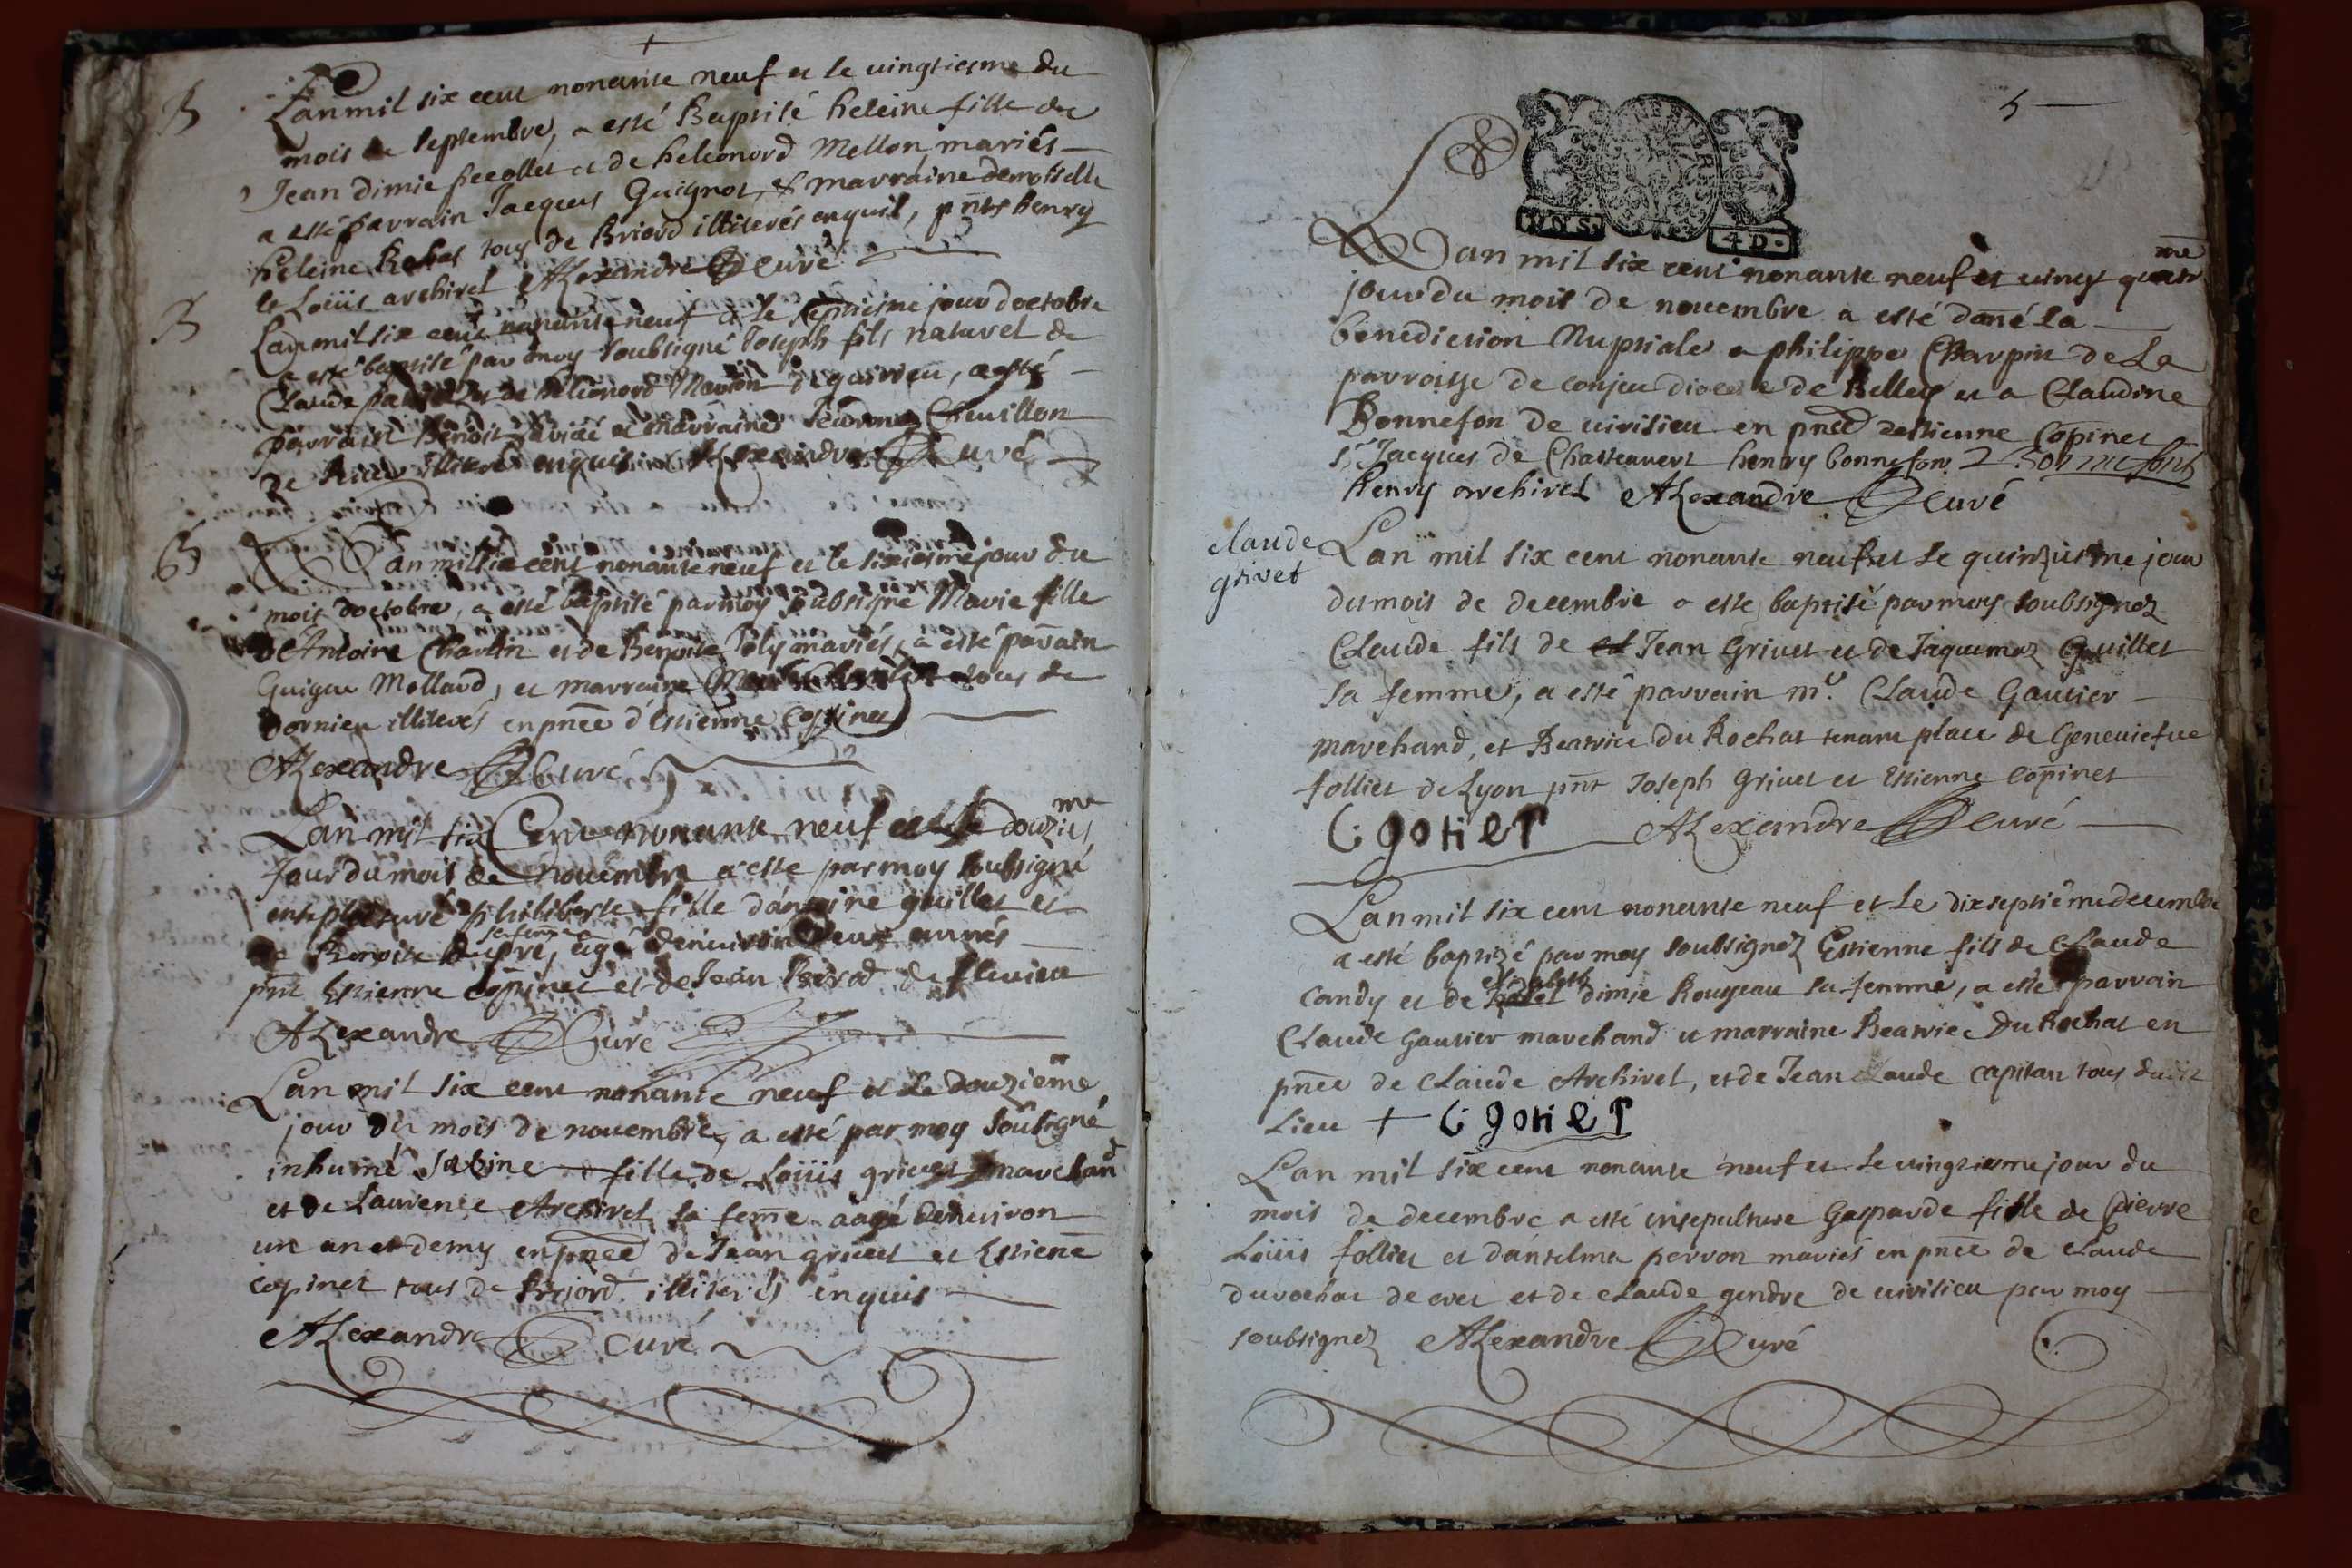 B
Lan mil six cent nonante neuf et le vingtiesme du
mois de septembre, a esté Baptisé heleine fille de
Jean dimie pecollet et de heleonord Mellon mariés
a esté parrain Jacques Guignot, & marraine demoiselle
heleine Rochat tous de Briord illiterés enquis, pnts henry
et Loüis archiret Alexandre Curé
B
Lan mil six cent nonante neuf et le septiesme jour doctobre
a esté baptisé par moy soubsigné Joseph fils naturel de
Claude et de heleonord a esté
parrain Benoit et marraine Chevillon
de illiterés enquis Alexandre Curé
B
Lan mil six cent nonante neuf et le sixiesme jour du
mois doctobre, a esté baptisé par moy soubsigné Marie fille
d'Antoine Charlin et de Benoite Poly mariés, a esté parrain
Guigue Mollard, et marraine tous de
Dornieu illiterés en pnce d'Estienne Copinet
Alexandre Curé
Lan mil six Cent nonante neuf et le douzies me
Jour du mois de novembre a esté par moy soubsigné
ensepulturé philiberte fille dantoine guillet et
de Benoite dupré, sa femme agé denviron deux années
pnt Estienne copinet et de Jean Perrod de fleurieu
Alexandre Curé
Lan mil six cent nonante neuf et le douzième
jour du mois de novembre, a esté par moy soubsigné
inhumé Sabine fille de Loüis grivet marchand
et de Laurence Archiret sa feme aagé denviron
un an et demy en pnce de Jean grivet et Estiene
Copinet tous de Briord illiterés enquis
Alexandre Curé
5
4 D.
Lan mil six cent nonante neuf et vingt quatr me
jour du mois de novembre a esté doné la
benediction Nuptiale a philippe Charpin de La
parroisse de conjeu diocese de Belley et a Claudine
Bonnefon de virisieu en pnce destienne Copinet
Sr Jacques de Chasteauvert henry bonnefon Bonnefont
henry archiret Alexandre Curé
claude
grivet
Lan mil six cent nonante neuf et le quinziesme jour
du mois de decembre a esté baptisé par moy soubsignez
Claude fils de Jean Grivet et de Jaquemaz Guillet
sa femme, a esté parrain mr. Claude Gautier
marchand, et Beatrice Du Rochat tenant place de Geneviefve
folliet de Lyon pnt Joseph Grivet et Estienne Copinet
C gotier Alexandre Curé
Lan mil six cent nonante neuf et le dixseptiéme decembre
a esté baptizé par moy soubsignez Estienne fils de Claude
Candy et de elizabeth dimie Rousseau sa femme, a esté parrain
Claude Gautier marchand et marraine Beatrice Du Rochat en
pnce de Claude Archiret, et de Jean Claude Capitan tous dudit
Lieu + C gotier
Lan mil six cent nonante neuf et le vingtiesme jour du
mois de decembre a esté ensepulture Gasparde fille de Pierre
Loüis folliet et dantelme perron mariés en pnce de Claude
durochat de evet et de Claude gendre de virisieu par moy
soubsignez Alexandre Curé